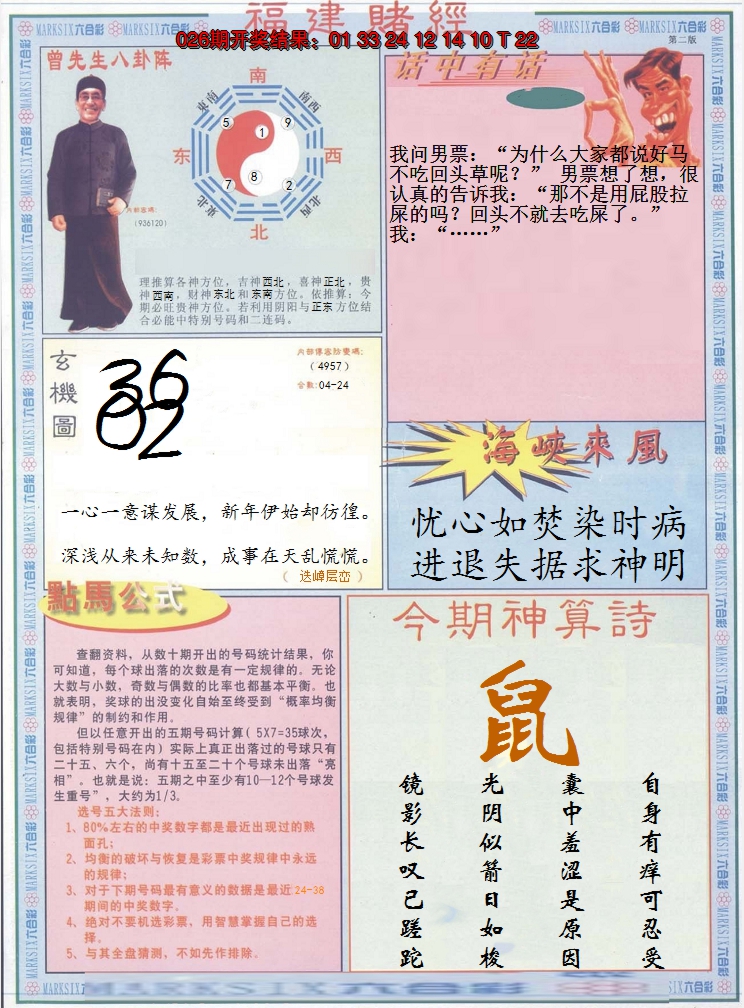 福建賭經
026期开奖结果：01 33 24 12 14 10 T 22
第二版
MARKSIX六合彩
曾先生八卦阵
南
东南
西南
5
1
9
东
西
7
8
2
东北
西北
北
内部密码:
(936120)
理推算各神方位，吉神西北，喜神正北，贵
神西南，财神东北和东南方位。依推算：今
期必旺贵神方位。若利用阴阳与正东方位结
合必能中特别号码和二连码。
话中有话
我问男票：“为什么大家都说好马
不吃回头草呢？” 男票想了想，很
认真的告诉我：“那不是用屁股拉
屎的吗？回头不就去吃屎了。”
我：“……”
玄機圖
36
02
(4957)
合数:04-24
一心一意谋发展，新年伊始却彷徨。
深浅从来未知数，成事在天乱慌慌。
（ 迭嶂层峦 ）
海峽來風
忧心如焚染时病
进退失据求神明
點馬公式
查翻资料，从数十期开出的号码统计结果，你
可知道，每个球出落的次数是有一定规律的。无论
大数与小数，奇数与偶数的比率也都基本平衡。也
就表明，奖球的出没变化自始至终受到“概率均衡
规律”的制约和作用。
但以任意开出的五期号码计算( 5X7=35球次，
包括特别号码在内) 实际上真正出落过的号球只有
二十五、六个，尚有十五至二十个号球未出落“亮
相”。也就是说：五期之中至少有10—12个号球发
生重号”，大约为1/3。
选号五大法则：
1、80%左右的中奖数字都是最近出现过的熟
面孔；
2、均衡的破坏与恢复是彩票中奖规律中永远
的规律；
3、对于下期号码最有意义的数据是最近24-38
期间的中奖数字。
4、绝对不要机选彩票，用智慧掌握自己的选
择。
5、与其全盘猜测，不如先作排除。
今期神算詩
鼠
自身有痒可忍受
囊中羞涩是原因
光阴似箭日如梭
镜影长叹已蹉跎